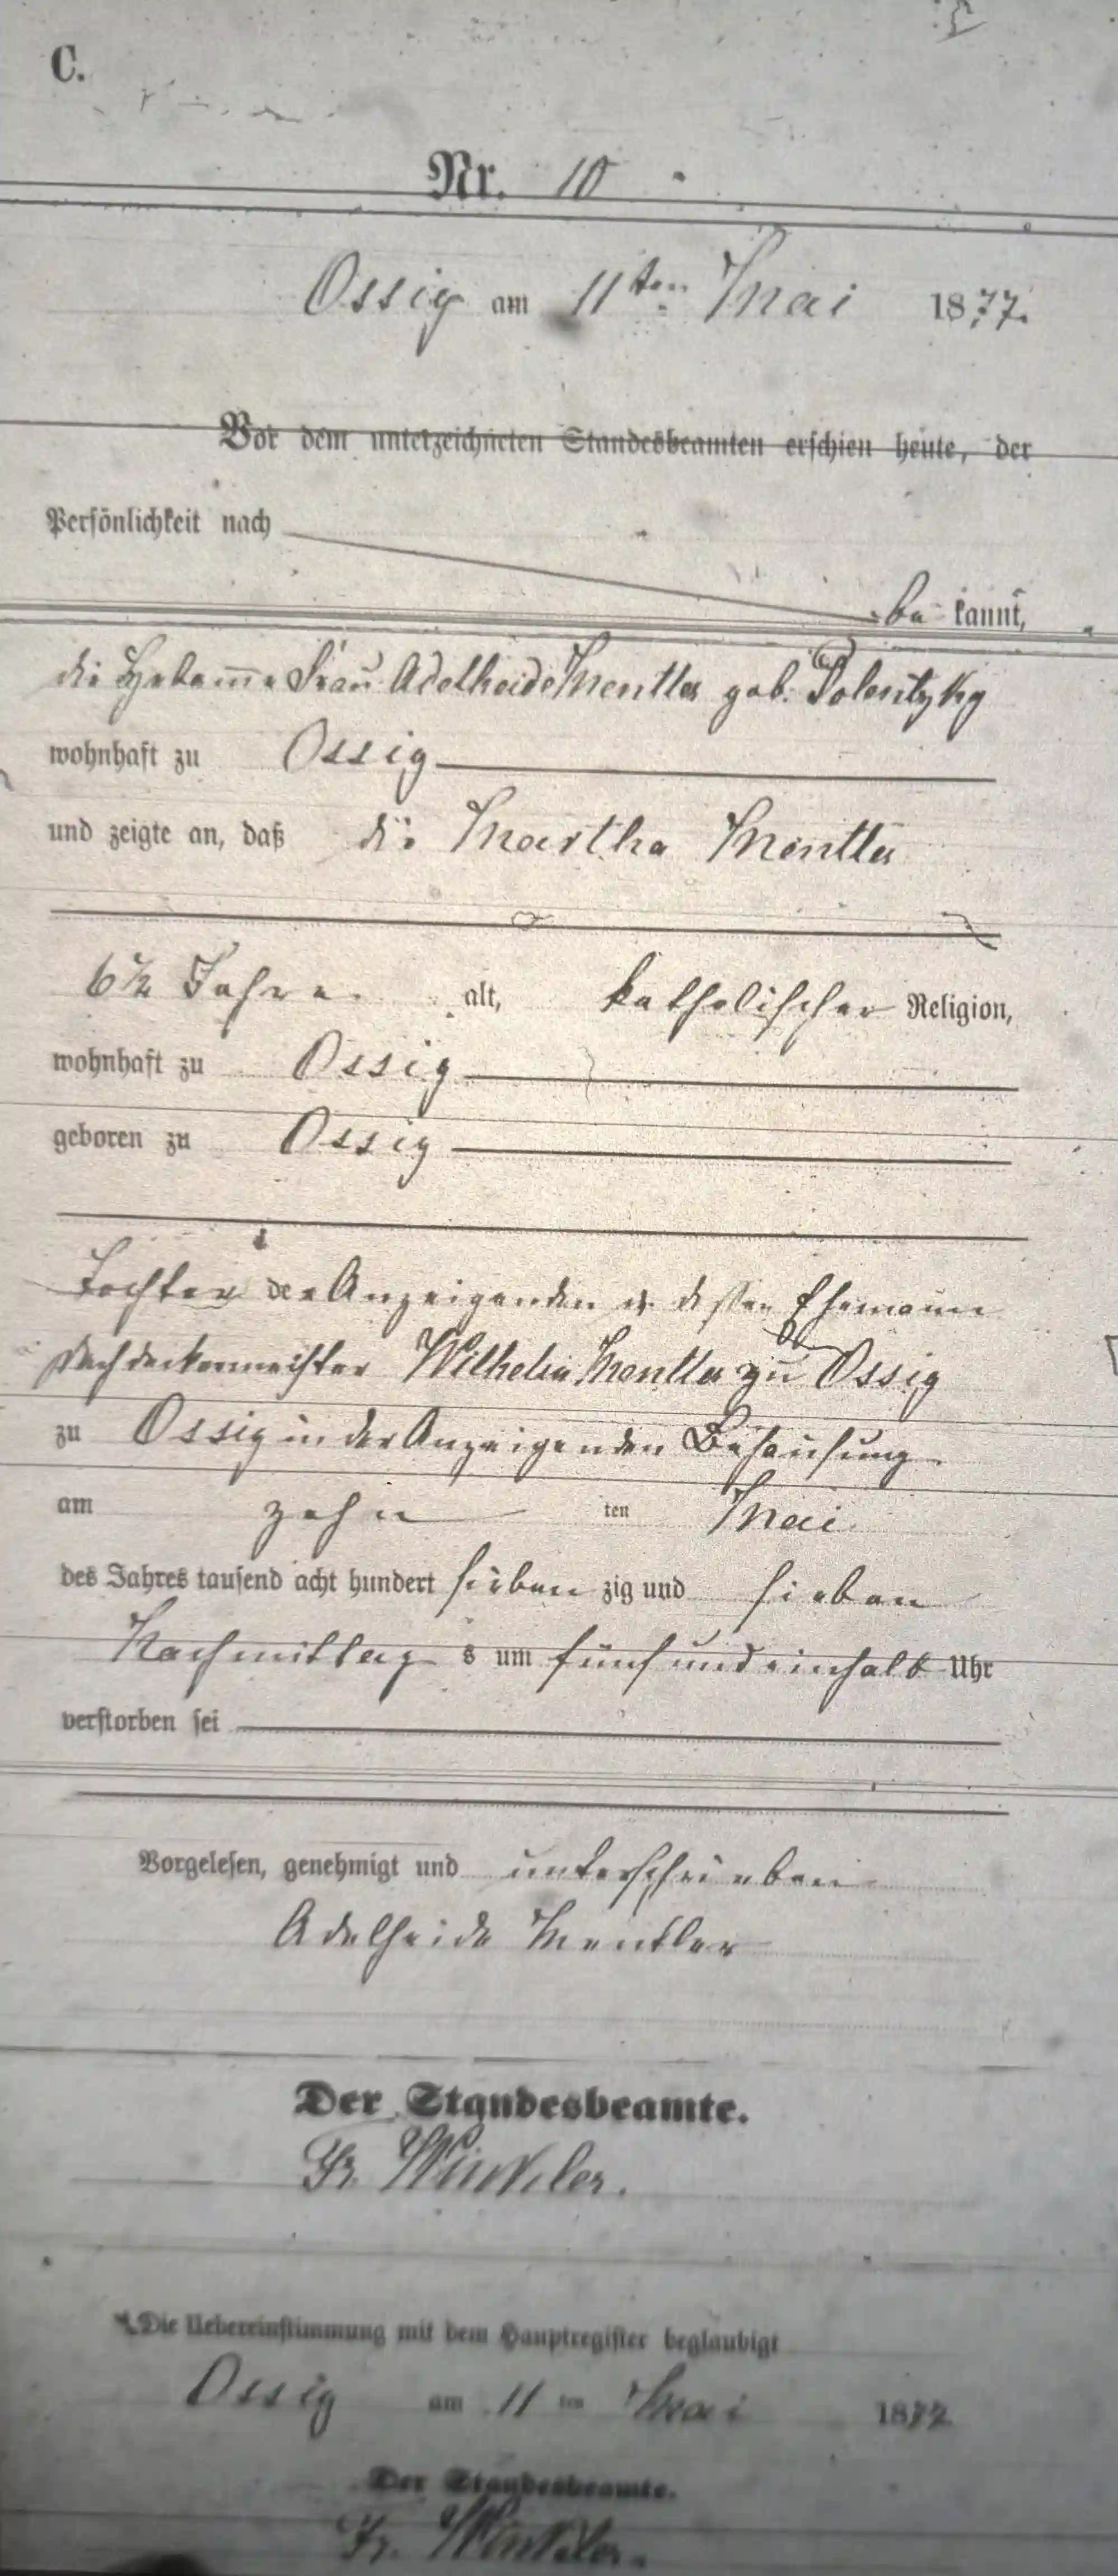 C.
Nr. 10
Ossig am 11ten Mai 1877.
Vor dem unterzeichneten Standesbeamten erschien heute, der
Persönlichkeit nach
be kannt,
die Hebamme Frau Adelheide Mentler geb.
wohnhaft zu Ossig
und zeigte an, daß die Martha Mentler
6½ Jahre alt, katholischer Religion,
wohnhaft zu Ossig
geboren zu Ossig
Tochter der Anzeigenden u. dessen Ehemann
Dachdeckermeister Wilhelm Mentler zu Ossig
zu Ossig in der Anzeigenden Behausung
am zehn ten Mai
des Jahres tausend acht hundert sieben zig und sieben
Nachmittag s um fünf und einhalb Uhr
verstorben sei
Vorgelesen, genehmigt und unterschrieben
Adelheide Mentler
Der Standesbeamte.
Fr. Winkler.
Die Uebereinstimmung mit dem Hauptregister beglaubigt
Ossig am 11 ten Mai 1877
Der Standesbeamte.
Fr. Winkler.